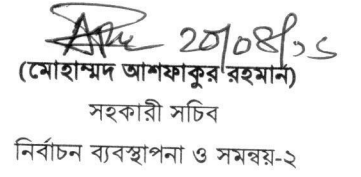 20/08/১৬
(মোহাম্মদ আশফাকুর রহমান)
সহকারী সচিব
নির্বাচন ব্যবস্থাপনা ও সমন্বয়-২